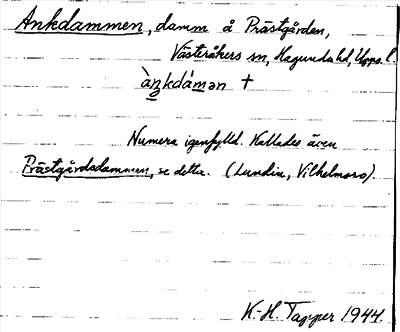 Ankdammen, damm å Prästgården,
Västeråkers sn, Hagunda hd, Upps. l.
àŋkdámən †
Numera igenfylld. Kallades även
Prästgårdsdammen, se detta. (Lundin, Vilhelmsro).
K.-H. Tapper 1944.